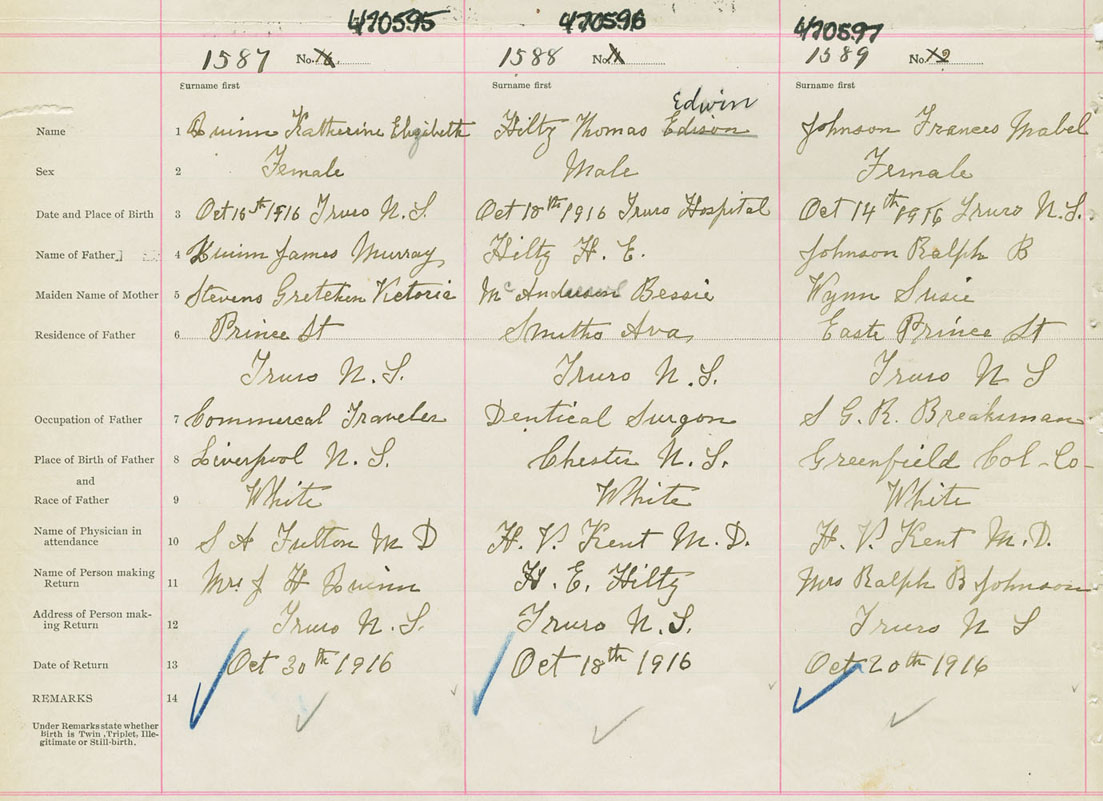 470595 470596 470597
1587 No. 1588 No. 1589 No.
Surname first Surname first Surname first
Edwin
Name 1 Quinn Katherine Elizabeth Hiltz Thomas Edison Johnson Frances Mabel
Sex 2 Female Male Female
Date and Place of Birth 3 Oct 16th 1916 Truro N.S. Oct 18th 1916 Truro Hospital Oct 14th 1916 Truro N.S.
Name of Father 4 Quinn James Murray Hiltz H. E. Johnson Ralph B
Maiden Name of Mother 5 Stevens Gretchen Victoria Bessie Wynn Susie
Residence of Father 6 Prince St Smiths Ava East Prince St
Truro N.S. Truro N.S. Truro N S
Occupation of Father 7 Commercal Traveler Dentical Surgon Breaksman
Place of Birth of Father 8 Liverpool N.S. Chester N.S. Greenfield Col-Co-
and
Race of Father 9 White White White
Name of Physician in
attendance 10 S A Fulton M D H. V. Kent M.D. H. V. Kent M.D.
Name of Person making
Return 11 Mrs J H Quinn H. E. Hiltz Mrs Ralph B Johnson
Address of Person mak-
ing Return 12 Truro N.S. Truro N.S. Truro N S
Date of Return 13 Oct 30th 1916 Oct 18th 1916 Oct 20th 1916
REMARKS 14
Under Remarks state whether
Birth is Twin, Triplet, Ille-
gitimate or Still-birth.